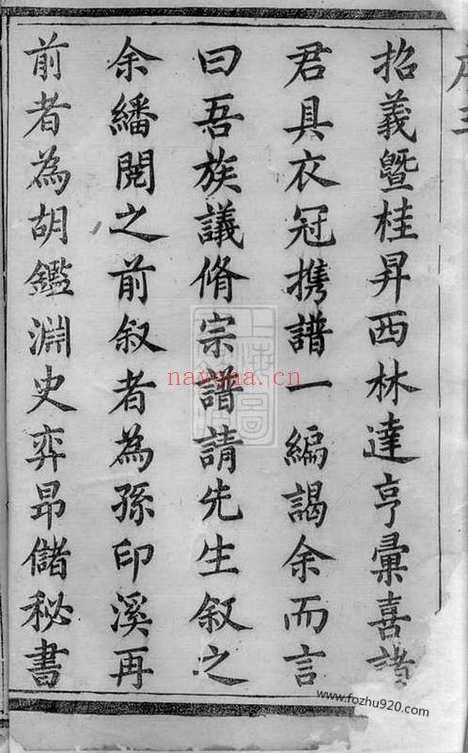 招義暨桂昇西林達亨彙喜諸
君具衣冠携譜一編謁余而言
曰吾族議脩宗譜請先生叙之
余繙閱之前叙者為孫印溪再
前者為胡鑑淵史弈昂儲秘書
nayona.cn
www.fozhu920.com